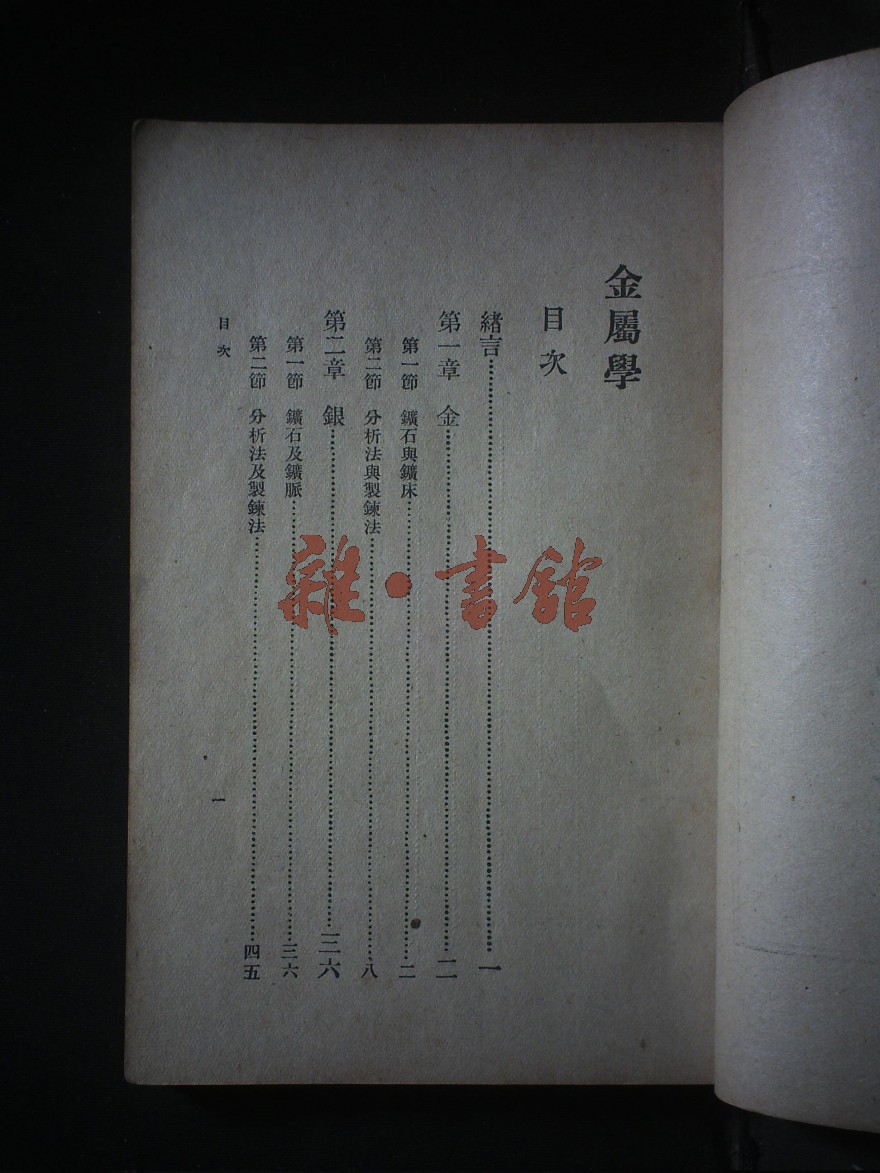 金屬學
目次
緒言……一
第一章　金……二
第一節　鑛石與鑛床……二
第二節　分析法與製鍊法……八
第二章　銀……三六
第一節　鑛石及鑛脈……三六
第二節　分析法及製鍊法……四五
目次
一
雜·書館